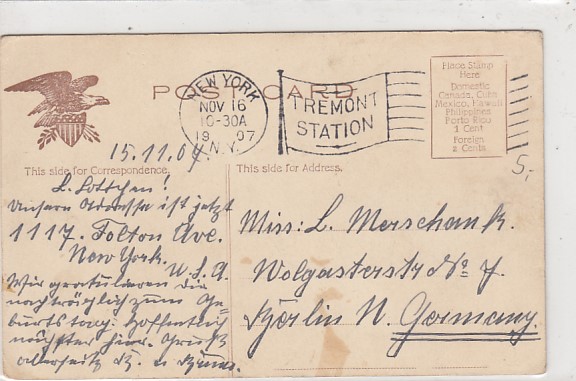 POST CARD
NEW YORK
N.Y.
NOV 16
10-30A
1907
TREMONT
STATION
Place Stamp
Here
Domestic
Canada, Cuba
Mexico, Hawaii
Philippines
Porto Rico
1 Cent
Foreign
2 Cents
5,-
15.11.07.
This side for Correspondence.
This side for Address.
L. Lottchen!
Unsere Adresse ist jetzt
1117. Folton Ave.
New York.
U.S.A.
Wir gratulieren Dir
nachträglich zum Ge-
burtstag. Hoffentlich
nächster hier. Gruß
allerseits
Miss: L. Merschank.
Wolgasterstr No 7.
Berlin N. Germany.